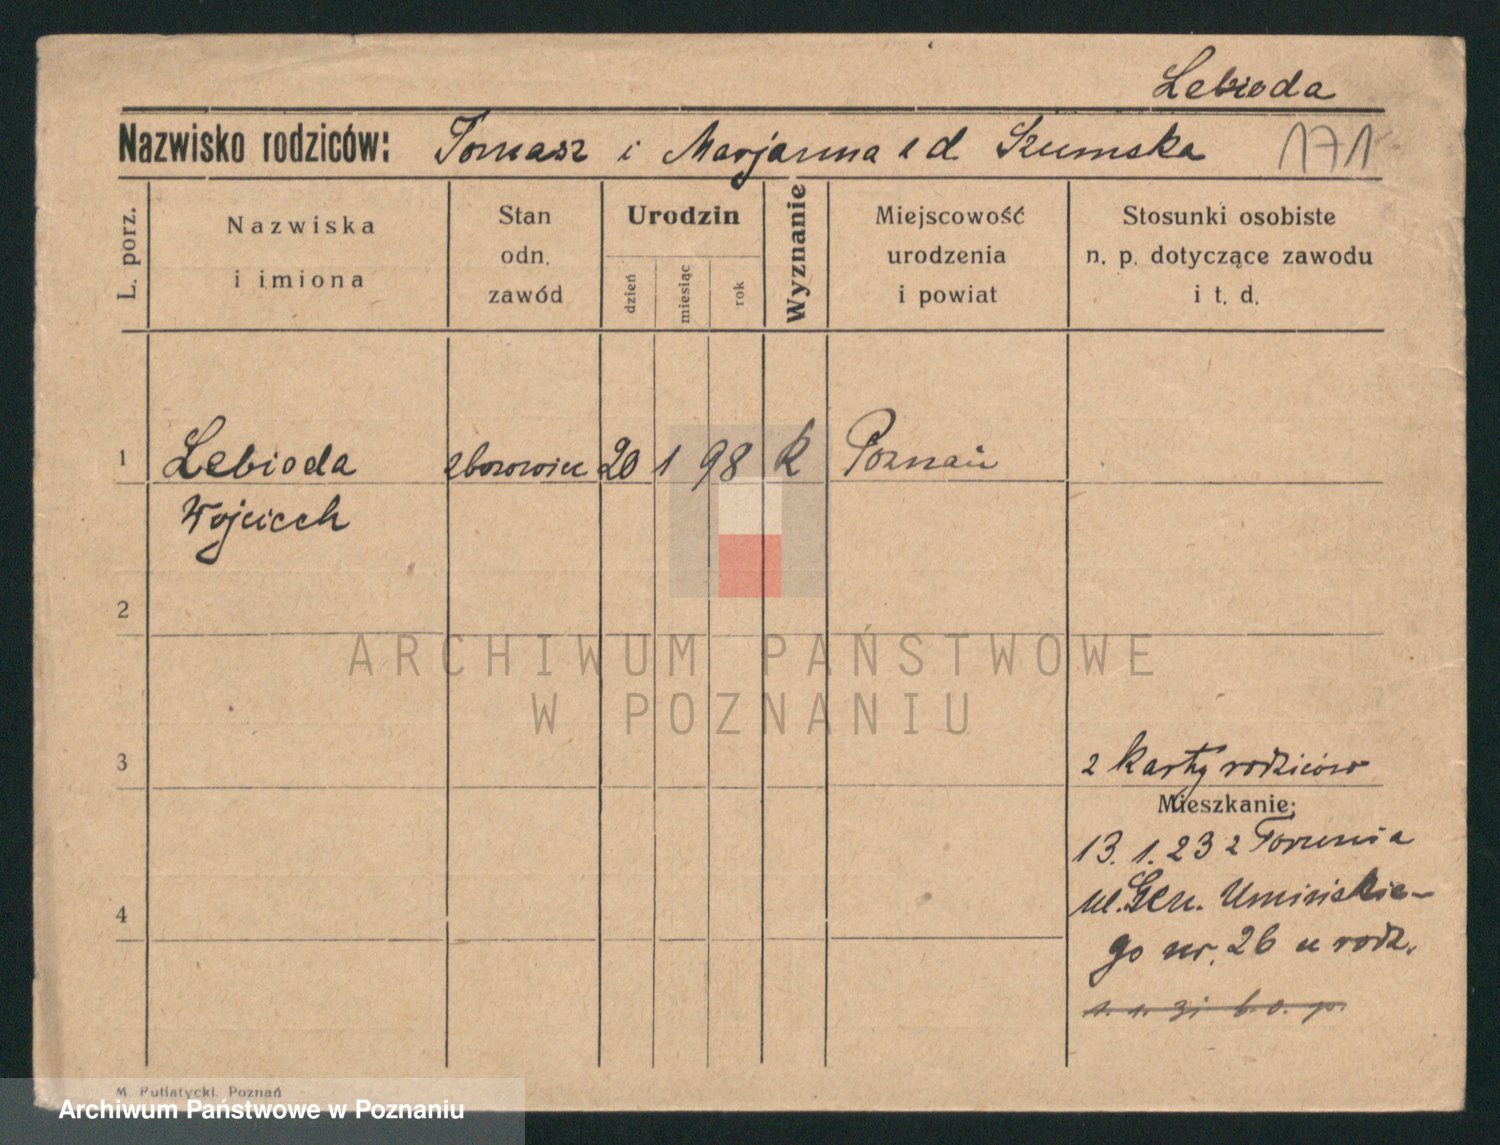 Lebioda
Nazwisko rodziców: Tomasz i Marjanna z d Szumska 171
L. porz.
Nazwiska i imiona
Stan odn. zawód
Urodzin
dzień
miesiąc
rok
Wyznanie
Miejscowość urodzenia i powiat
Stosunki osobiste n. p. dotyczące zawodu i t. d.
1 Lebioda 20 1 98 k Poznań
Wojciech
2
ARCHIWUM PAŃSTWOWE
W POZNANIU
3 2 karty rodziców
Mieszkanie:
13.1.23 z Torunia
ul. Gen. Umińskie-
4
go nr. 26 u rodz.
M. Putiatycki, Poznań
Archiwum Państwowe w Poznaniu